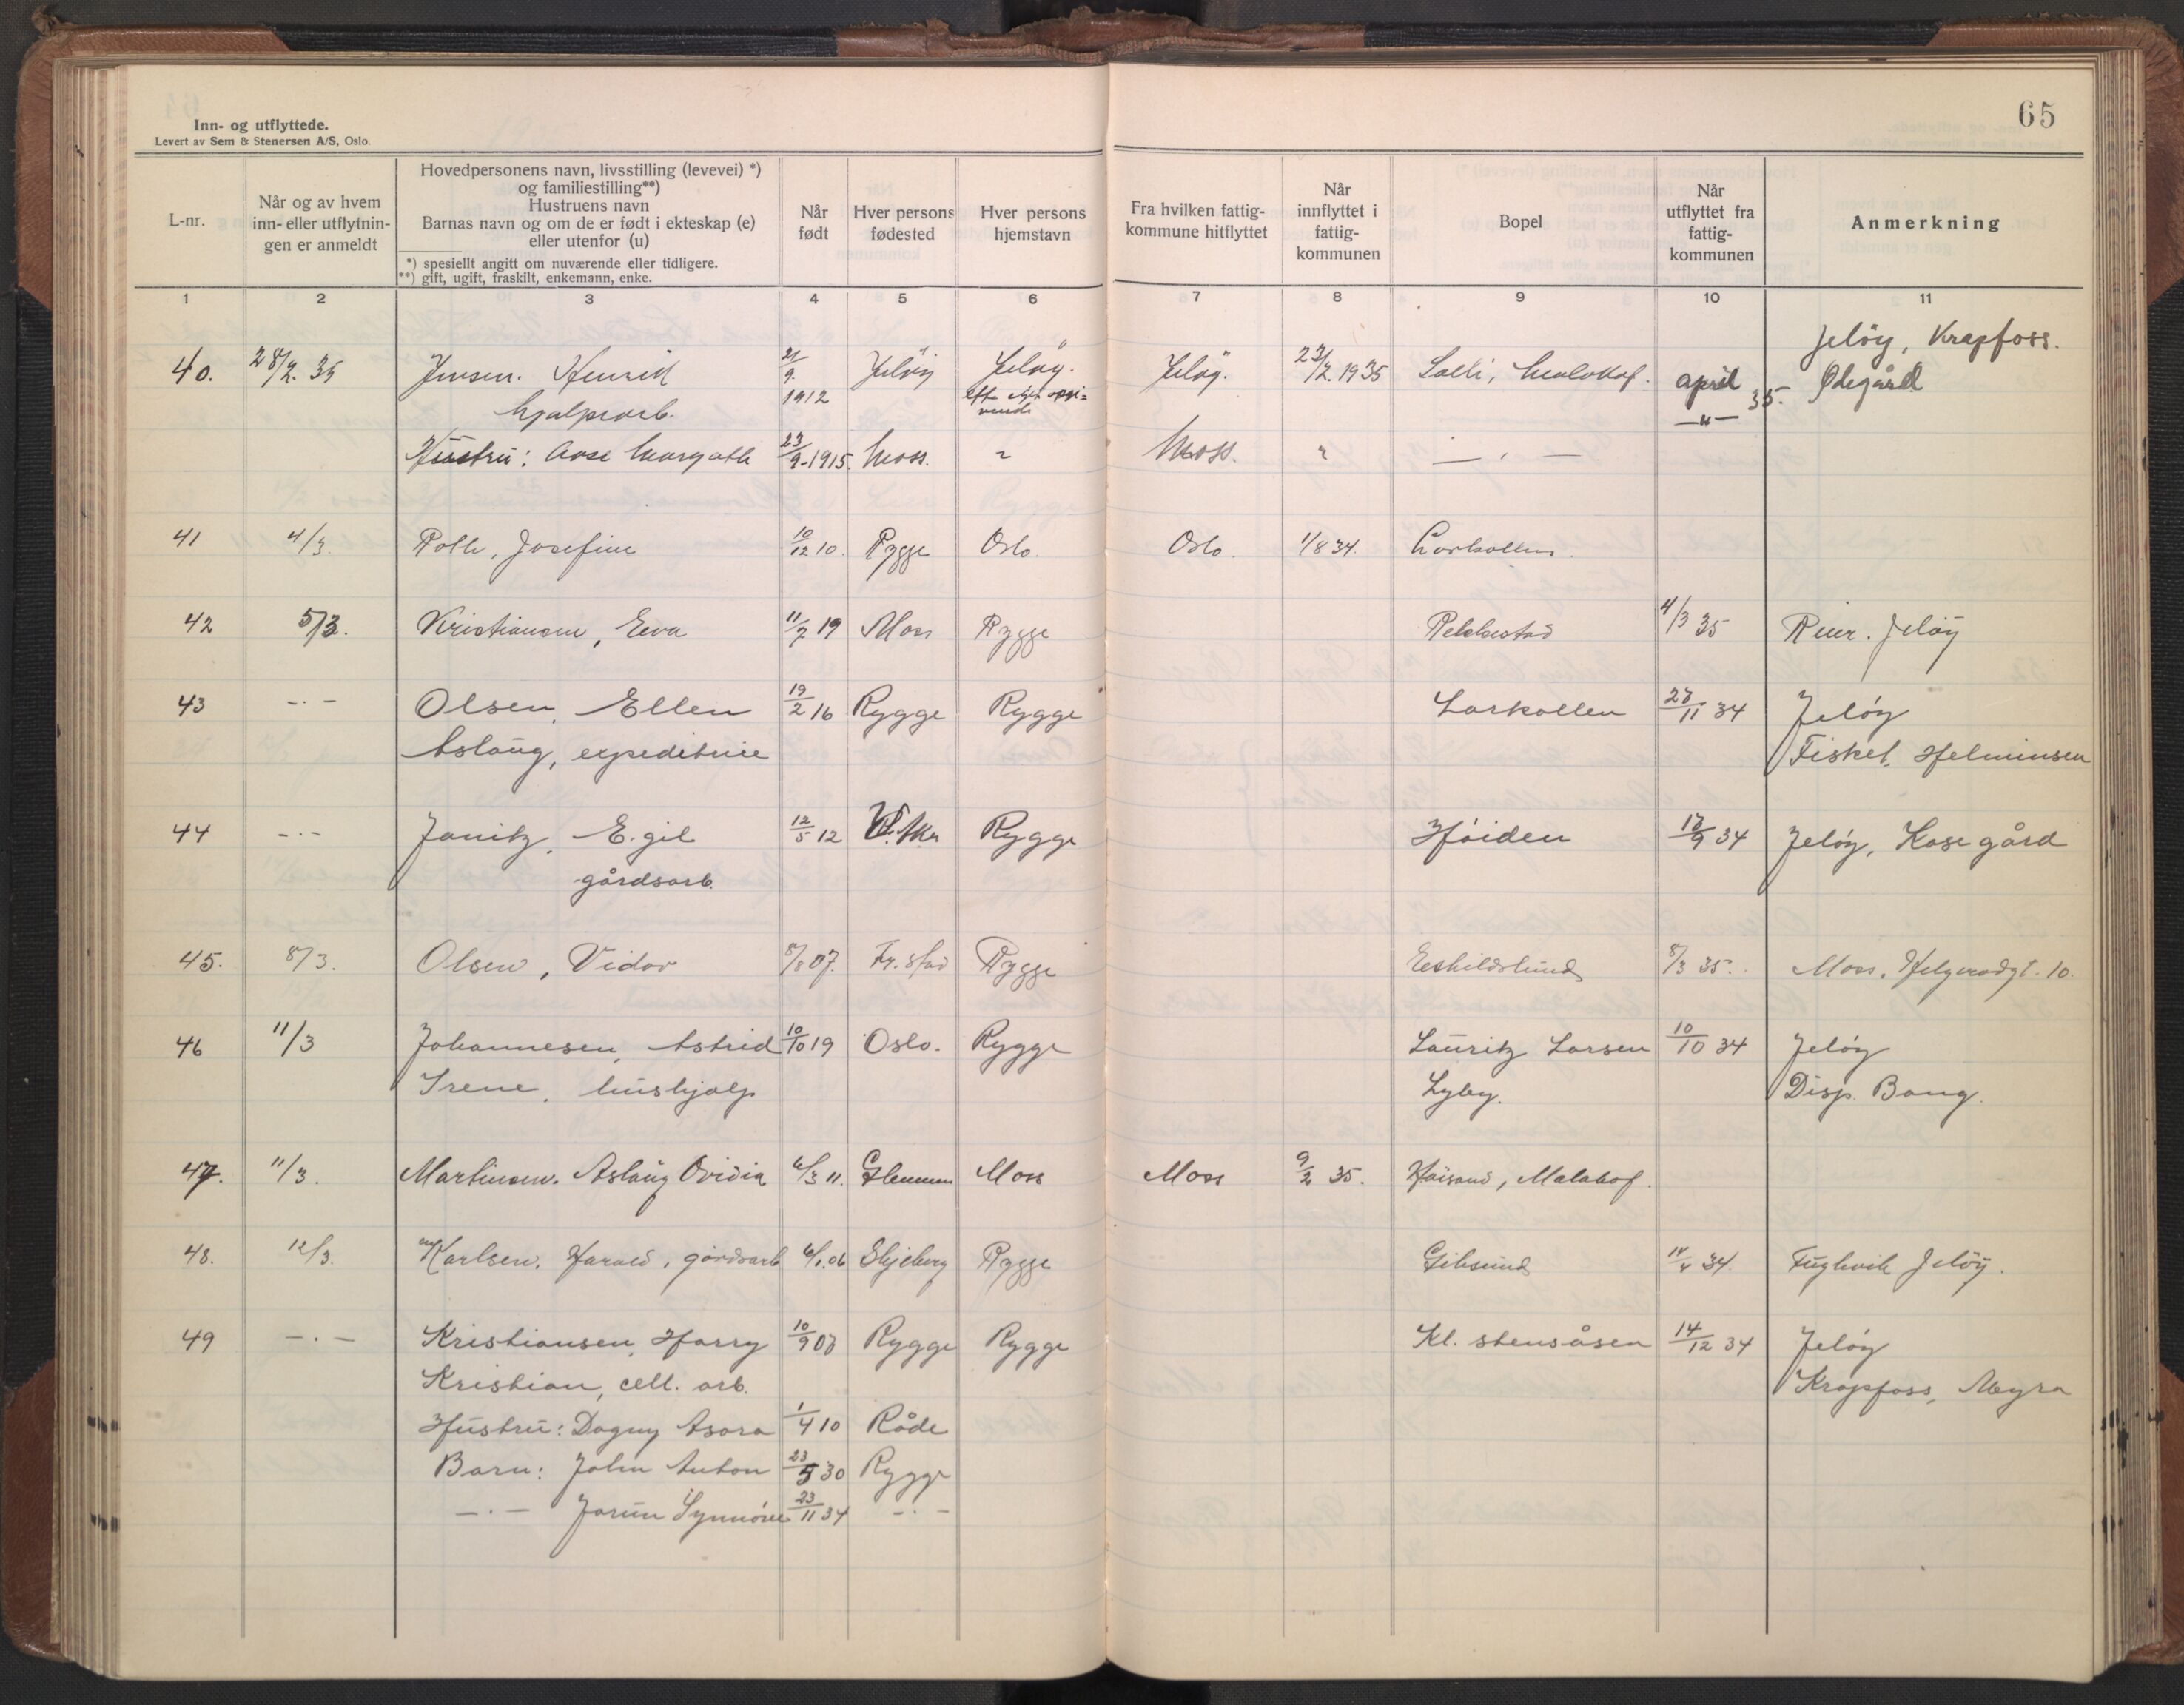 65
Inn- og utflyttede.
Levert av Sem & Stenersen A/S, Oslo.
L-nr.
Når og av hvem inn- eller utflytnin- gen er anmeldt
Hovedpersonens navn, livsstilling (levevei) *)
og familiestilling**)
Hustruens navn
Barnas navn og om de er født i ekteskap (e)
eller utenfor (u)
*) spesiellt angitt om nuværende eller tidligere.
**) gift, ugift, fraskilt, enkemann, enke.
Når født
Hver persons fødested
Hver persons hjemstavn
Fra hvilken fattig- kommune hitflyttet
Når innflyttet i fattig- kommunen
Bopel
Når utflyttet fra fattig- kommunen
Anmerkning
1 2 3 4 5 6 7 8 9 10 11
Jeløy, Krapfoss.
40. 28/2. 35 Jensen. Henrik 21/9. 1912 Jeløy Jeløy. Jeløy. 23/2. 1935 Salli, Malakof. april 35. Ødegård
hjelpearb. efter eget opgi=
vende —"—
Hustru: Aase Margoth 23/9-1915. Moss. " Moss. " — " —
41 4/3. Roth, Josefine 10/12 10. Rygge Oslo. Oslo. 1/8 34. Larkollen.
42 5/3. Kristiansen, Eeva 11/2 19 Moss Rygge Rekkestad 4/3 35 Reier. Jeløy
43 -.- Olsen, Ellen 19/2 16 Rygge Rygge Larkollen 27/11 34 Jeløy
Aslaug, expeditrise Fiskel. Helminsen
44 -.- Janitz, Egil 12/5 12 Rygge Høiden 17/9 34 Jeløy, Kase gård
gårdsarb.
45. 8/3. Olsen, Vidar 8/8 07. Fr.stad Rygge Eskildslund 8/3 35. Moss, Helgerødgt. 10.
46 11/3 Johannesen, Astrid 10/10 19 Oslo. Rygge Lauritz Larsen 10/10 34 Jeløy
Irene, hushjelp Lyby. Disp. Bang.
47. 11/3. Martinsen. Aslaug Ovidia 6/3 11. Glemmen Moss Moss 9/2 35. Høisand, Malakof.
48. 12/3. Karlsen, Harald, gårdsarb 6/1.06 Skjeberg Rygge Gibsund 14/4 34. Fuglevik Jeløy.
49 -.- Kristiansen, Harry 10/9 07 Rygge Rygge Kl. stensåsen 14/12 34 Jeløy
Kristian, cell. arb. Krapfoss, Myra
Hustru: Dagny Asora 1/4 10 Råde
Barn: John Anton 23/5 30 Rygge
-.- Jorun Synnøve 23/11 34 -.-